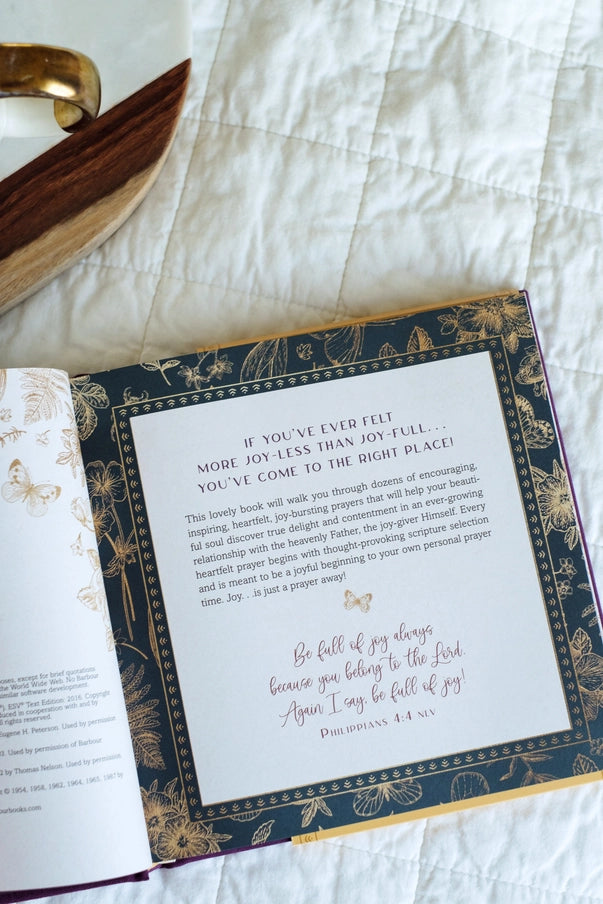 oses, except for brief quotations
the World Wide Web. No Barbour
similar software development.
ESV® Text Edition: 2016. Copyright
duced in cooperation with and by
ll rights reserved.
Eugene H. Peterson. Used by permission
Used by permission of Barbour
2 by Thomas Nelson. Used by permission
© 1954, 1958, 1962, 1964, 1965, 1987 by
ourbooks.com
IF YOU'VE EVER FELT
MORE JOY-LESS THAN JOY-FULL...
YOU'VE COME TO THE RIGHT PLACE!
This lovely book will walk you through dozens of encouraging,
inspiring, heartfelt, joy-bursting prayers that will help your beauti-
ful soul discover true delight and contentment in an ever-growing
relationship with the heavenly Father, the joy-giver Himself. Every
heartfelt prayer begins with thought-provoking scripture selection
and is meant to be a joyful beginning to your own personal prayer
time. Joy. . .is just a prayer away!
Be full of joy always
because you belong to the Lord.
Again I say, be full of joy!
PHILIPPIANS 4:4 NLV